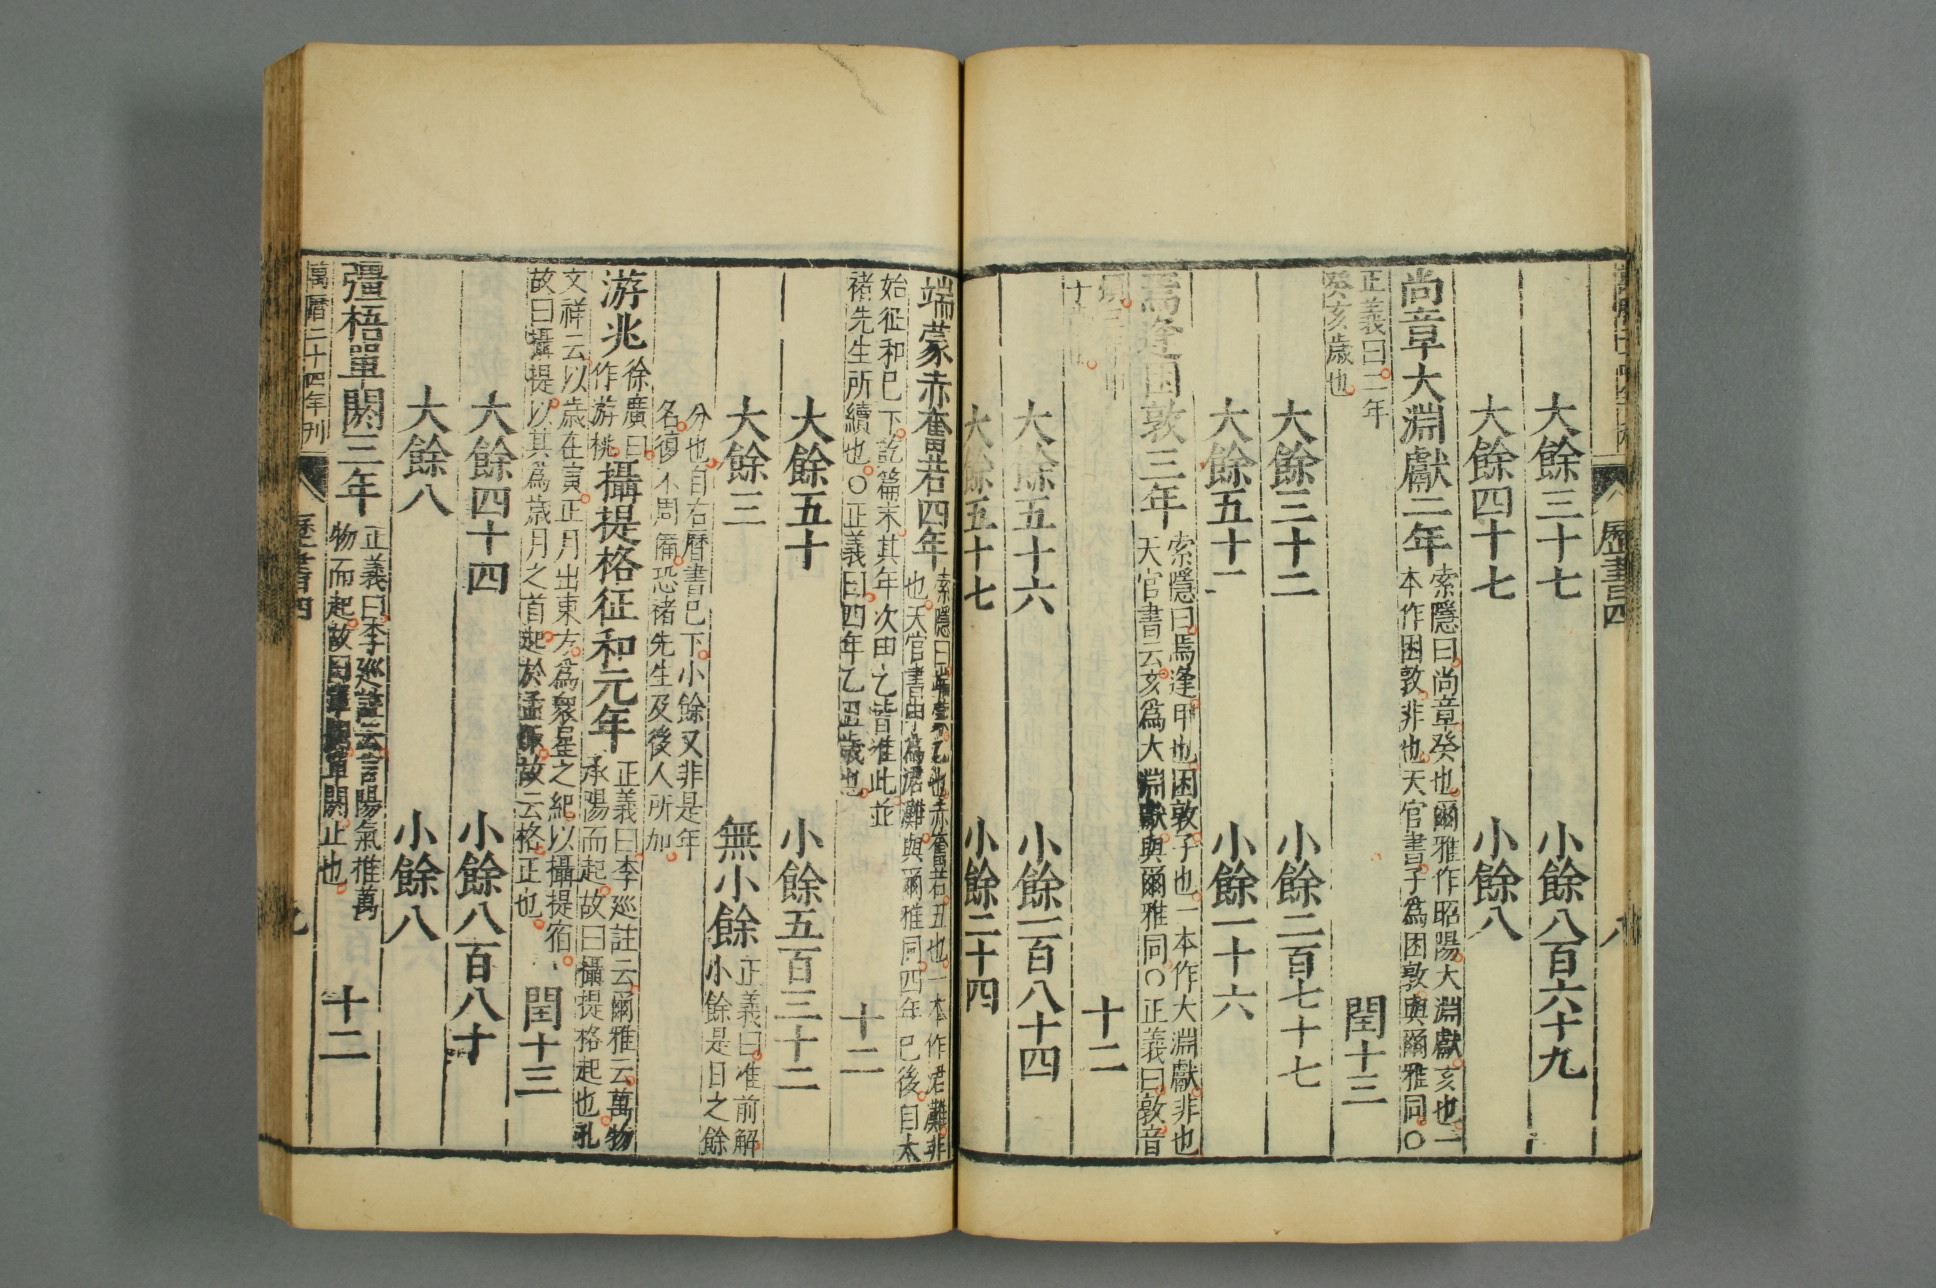 歷書四
大餘三十七 小餘八百六十九
大餘四十七 小餘八
尚章大淵獻二年 索隱曰尚章癸也爾雅作昭陽大淵獻亥也一
本作困敦非也天官書子為困敦與爾雅同○
正義曰二年
癸亥歲也 閏十三
大餘三十二 小餘二百七十七
大餘五十一 小餘一十六
焉逢困敦三年 索隱曰焉逢甲也困敦子也一本作大淵獻非也
天官書云亥為大淵獻與爾雅同○正義曰敦音
十二
大餘五十六 小餘一百八十四
大餘五十七 小餘二十四
端蒙赤奮若四年 索隱曰端蒙乙也赤奮若丑也一本作涒灘非
也天官書申為涒灘與爾雅同四年已後自太
始征和已下訖篇末其年次甲乙皆准此並
褚先生所續也○正義曰四年乙丑歲也 十二
大餘五十 小餘五百三十二
大餘三 無小餘 正義曰准前解
小餘是日之餘
分也自右曆書已下小餘又非是年
名復不周備恐褚先生及後人所加
游兆 徐廣曰
作游桃 攝提格征和元年 正義曰李巡註云爾雅云萬物
承陽而起故曰攝提格起也孔
文祥云以歲在寅正月出東方為衆星之紀以攝提宿
故曰攝提以其為歲月之首起於孟陬故云格正也 閏十三
大餘四十四 小餘八百八十
大餘八 小餘八
彊梧單閼三年 正義曰李巡註云言陽氣推萬
物而起故曰單閼單閼止也 十二
萬曆二十四年刊
歷書四 九